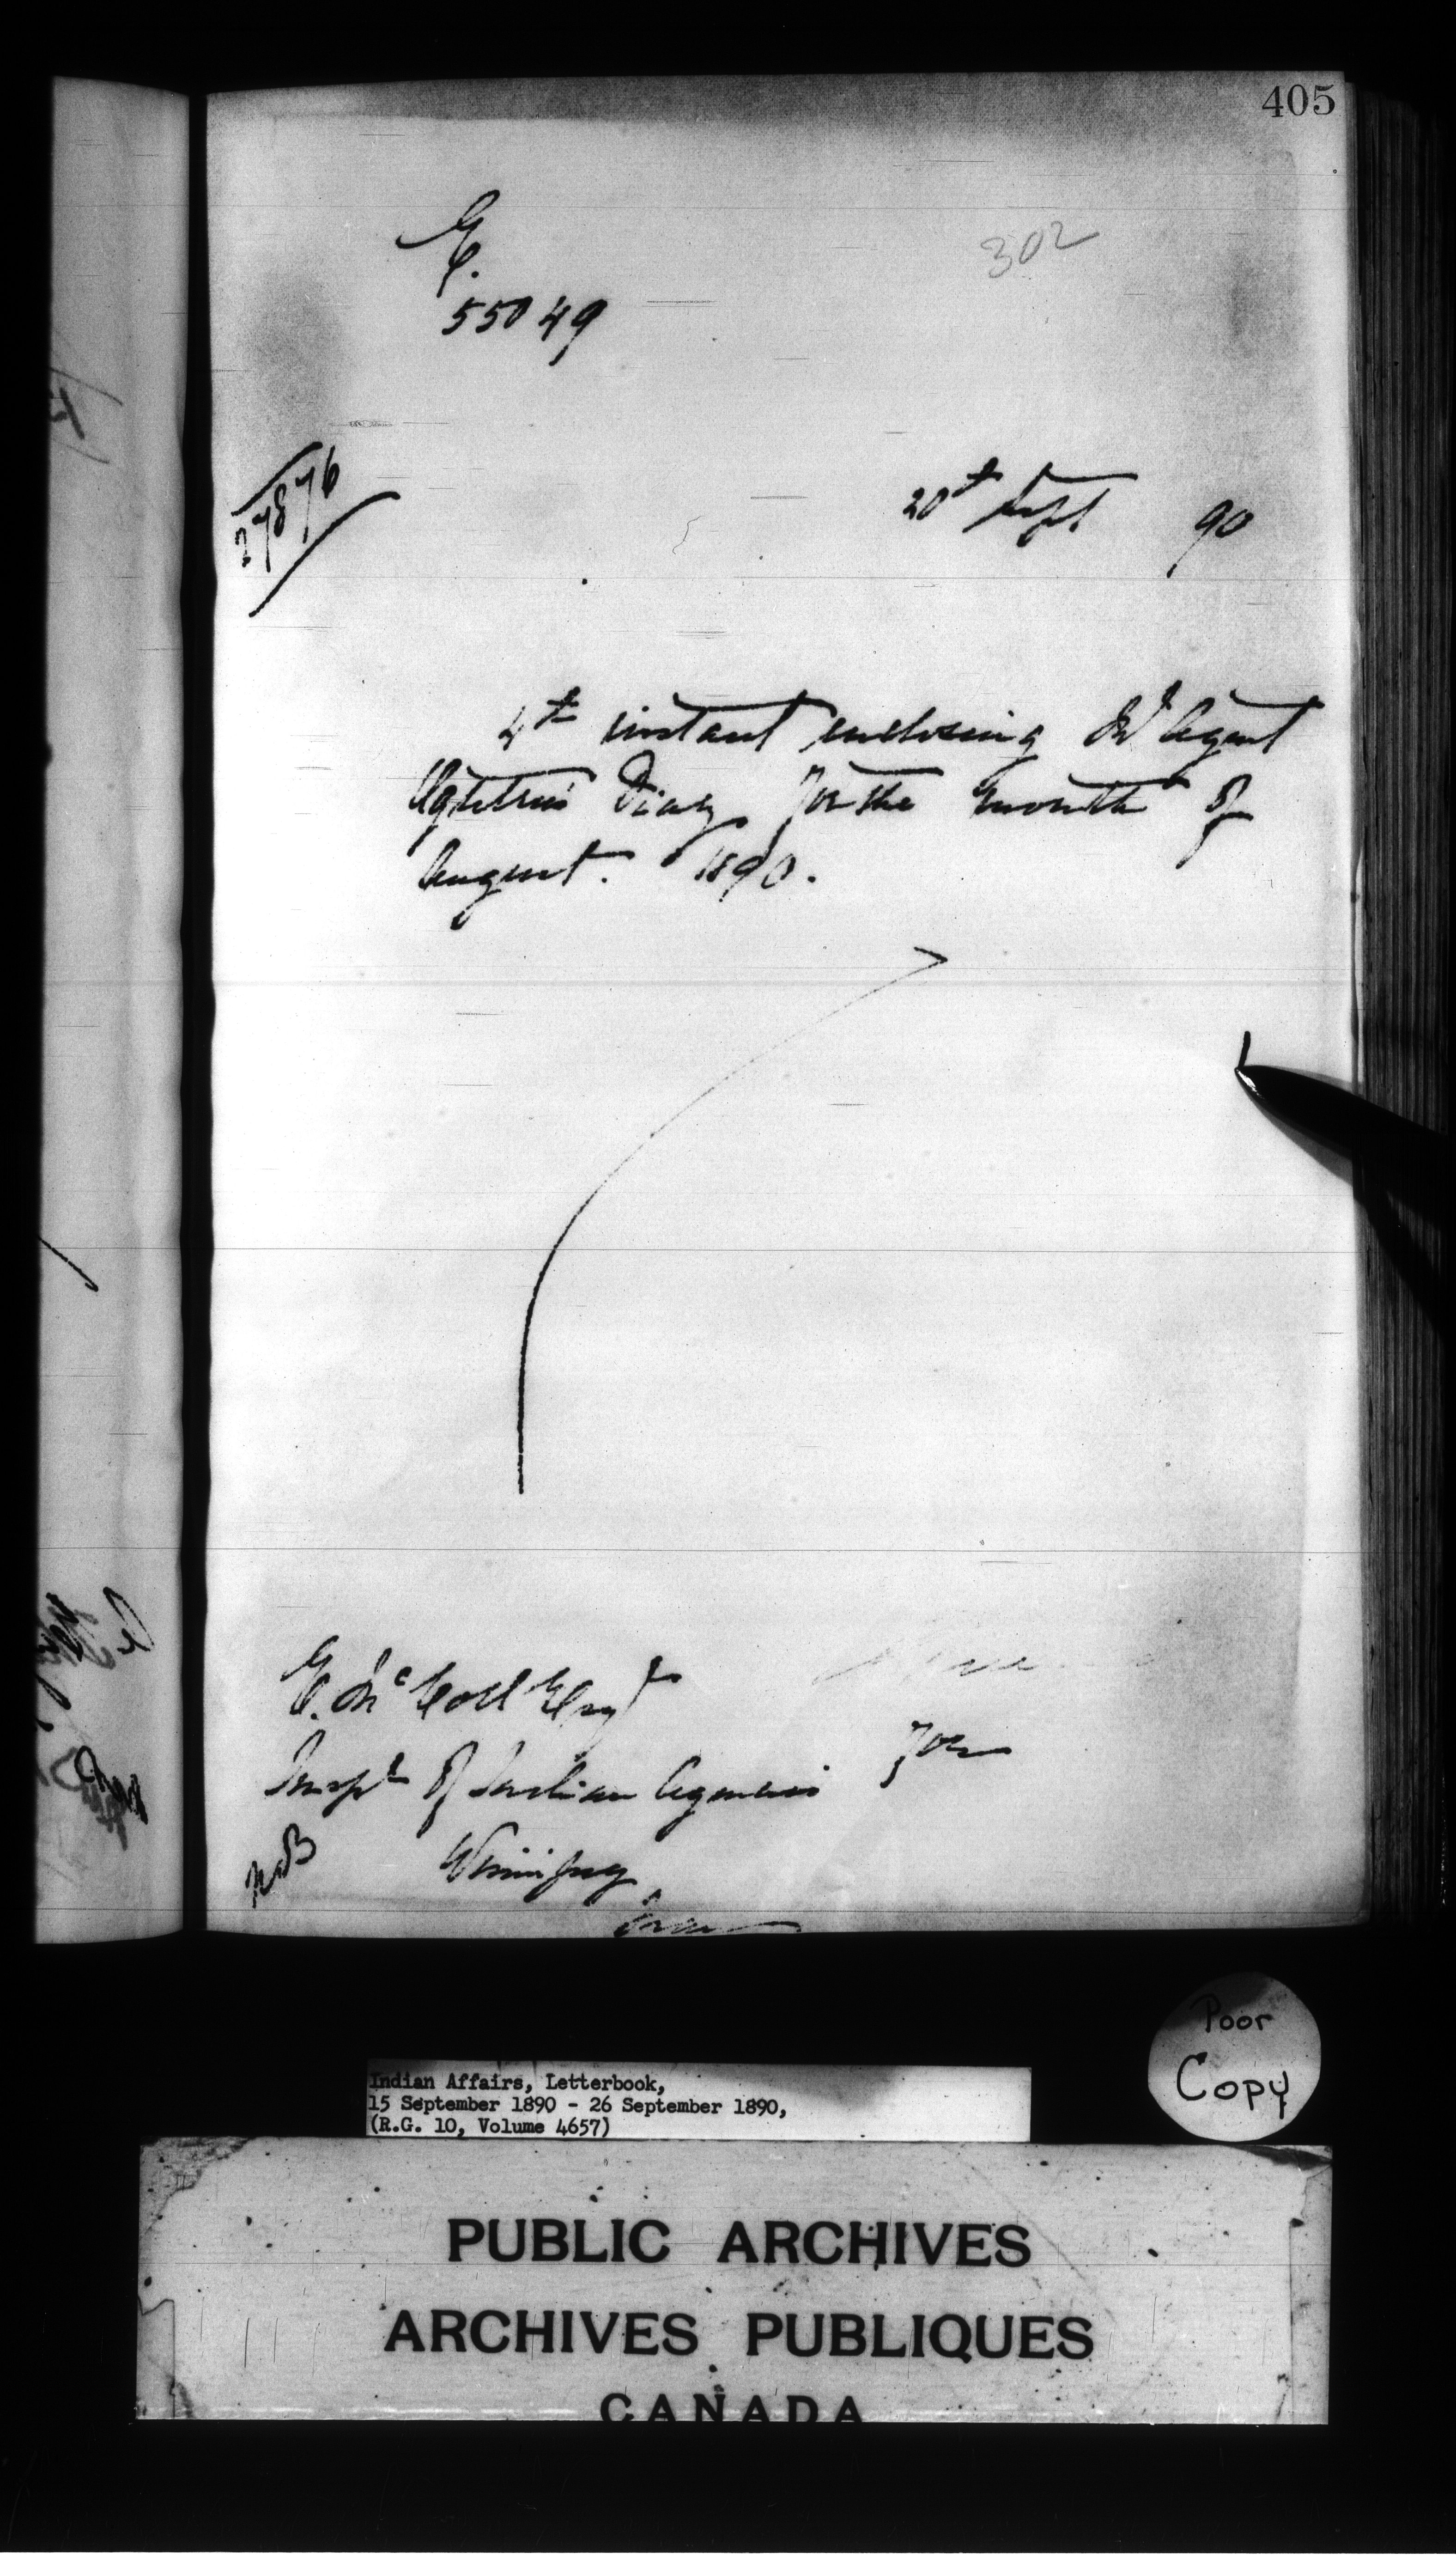 405
302
E.
55049
27876
20th Sept 90
4th instant enclosing Ind Agent
Ogletree's Diary for the month of
August. 1890.
E. McColl Esqr
Inspr of Indian Agencies
for
Winnipeg
Man
Poor
Copy
Indian Affairs, Letterbook,
15 September 1890 - 26 September 1890,
(R.G. 10, Volume 4657)
PUBLIC ARCHIVES
ARCHIVES PUBLIQUES
CANADA